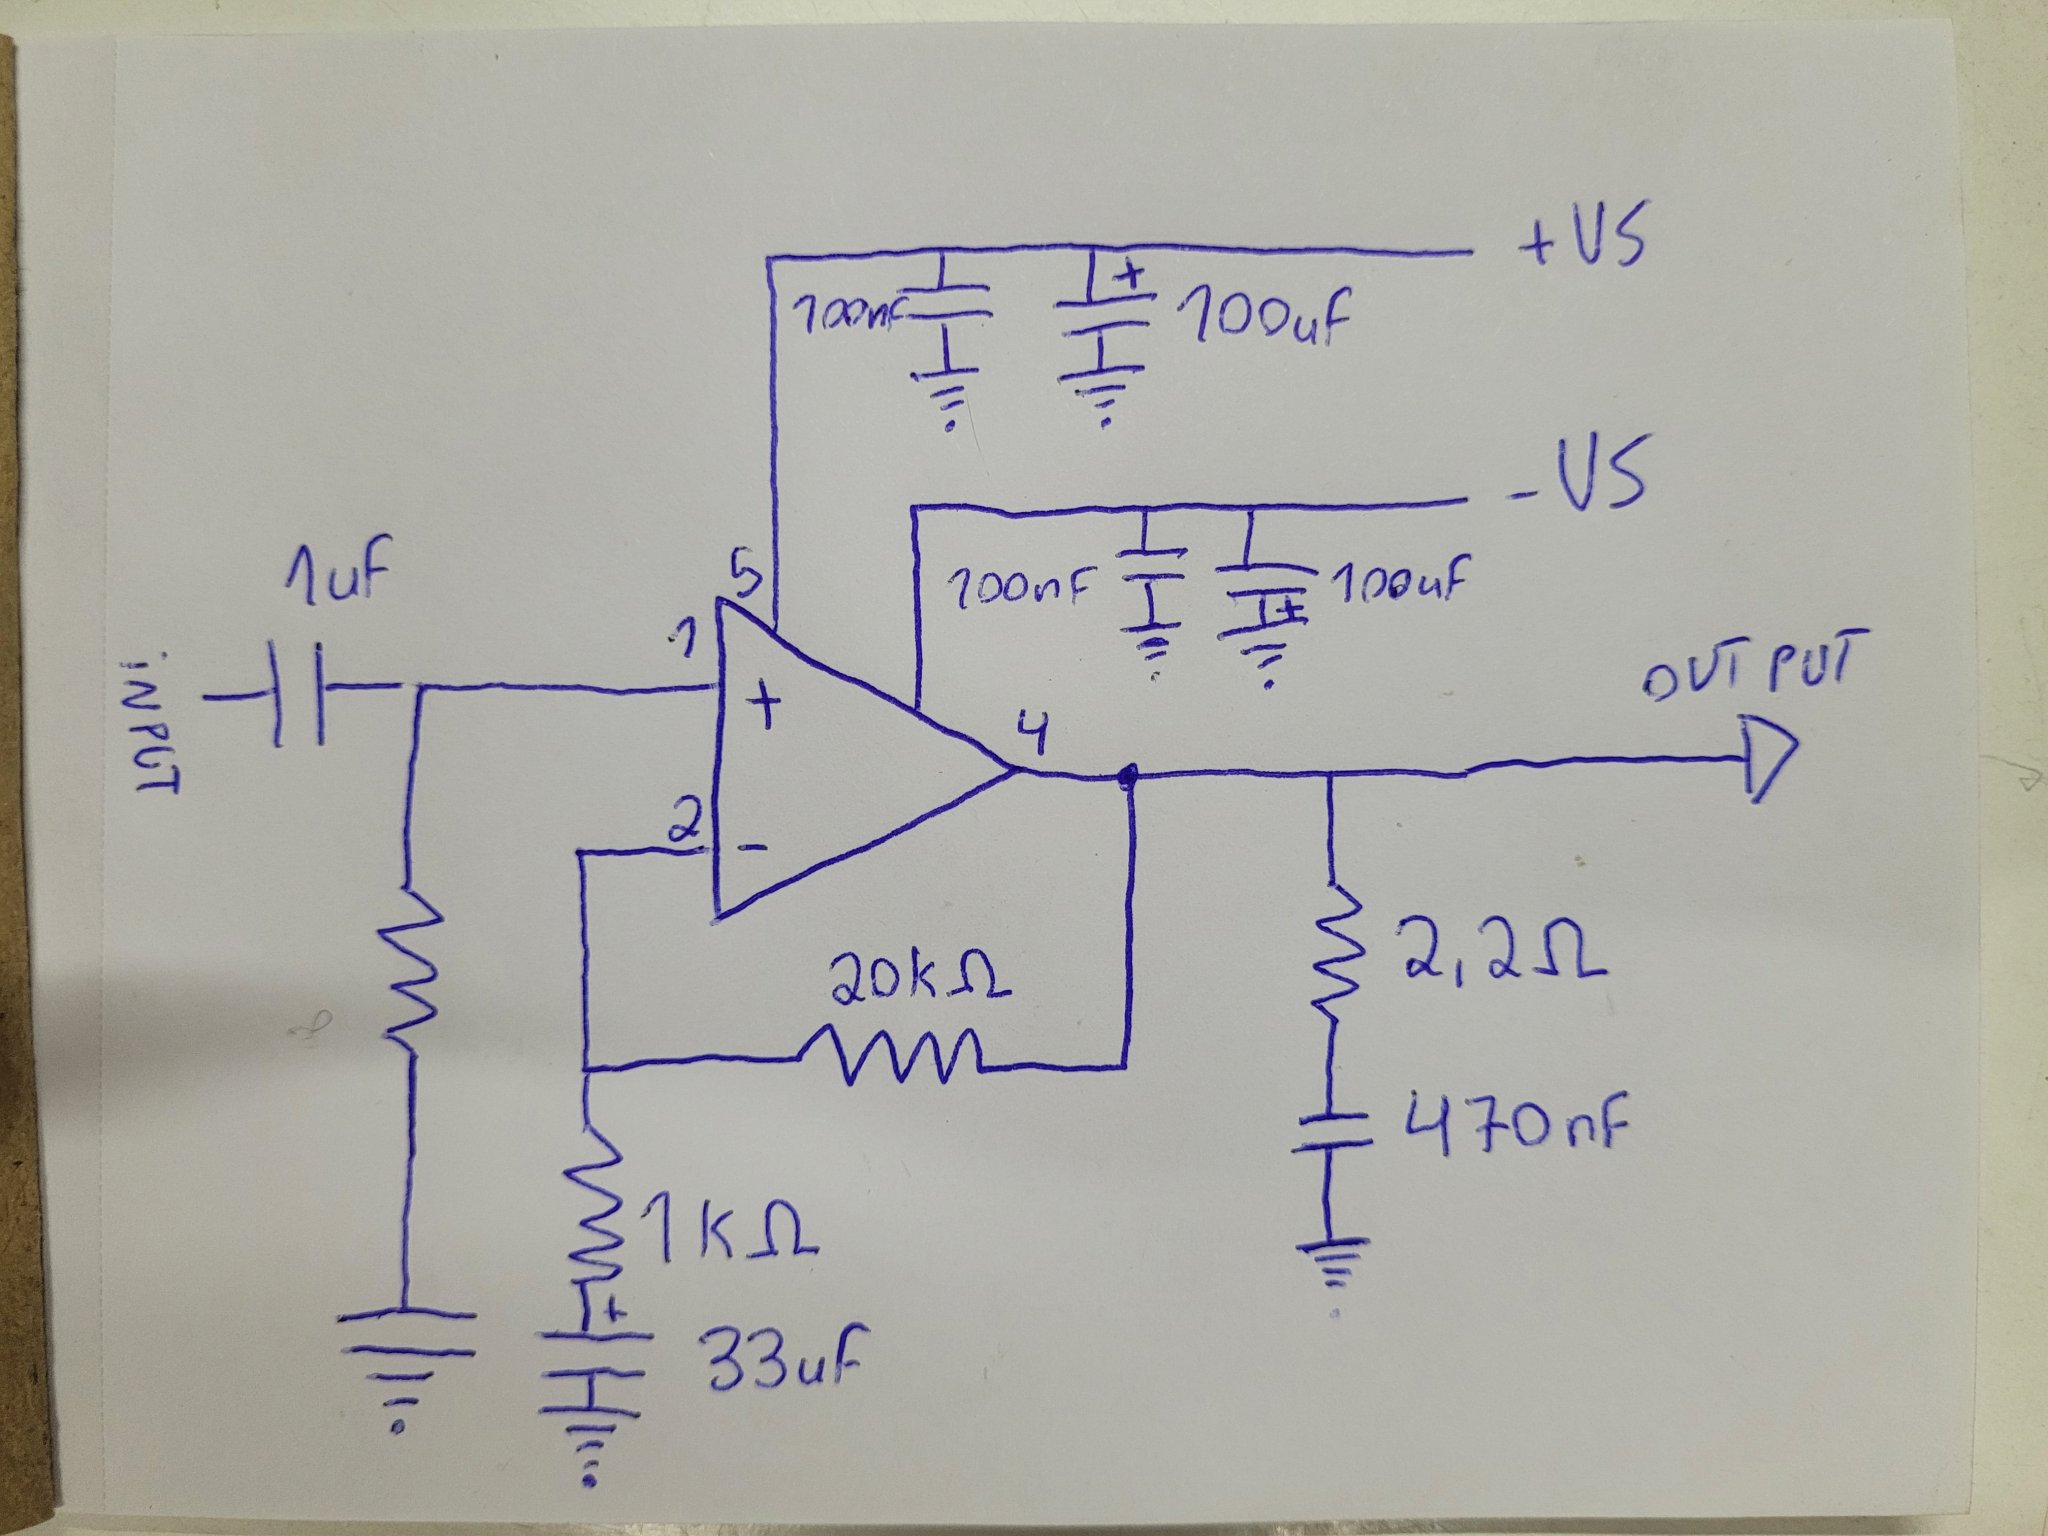 +VS
+
100nF
100uF
-VS
100nF
100uF
+
1uF
5
1
INPUT
+
4
OUTPUT
2
-
20kΩ
2,2Ω
470nF
1kΩ
+
33uF